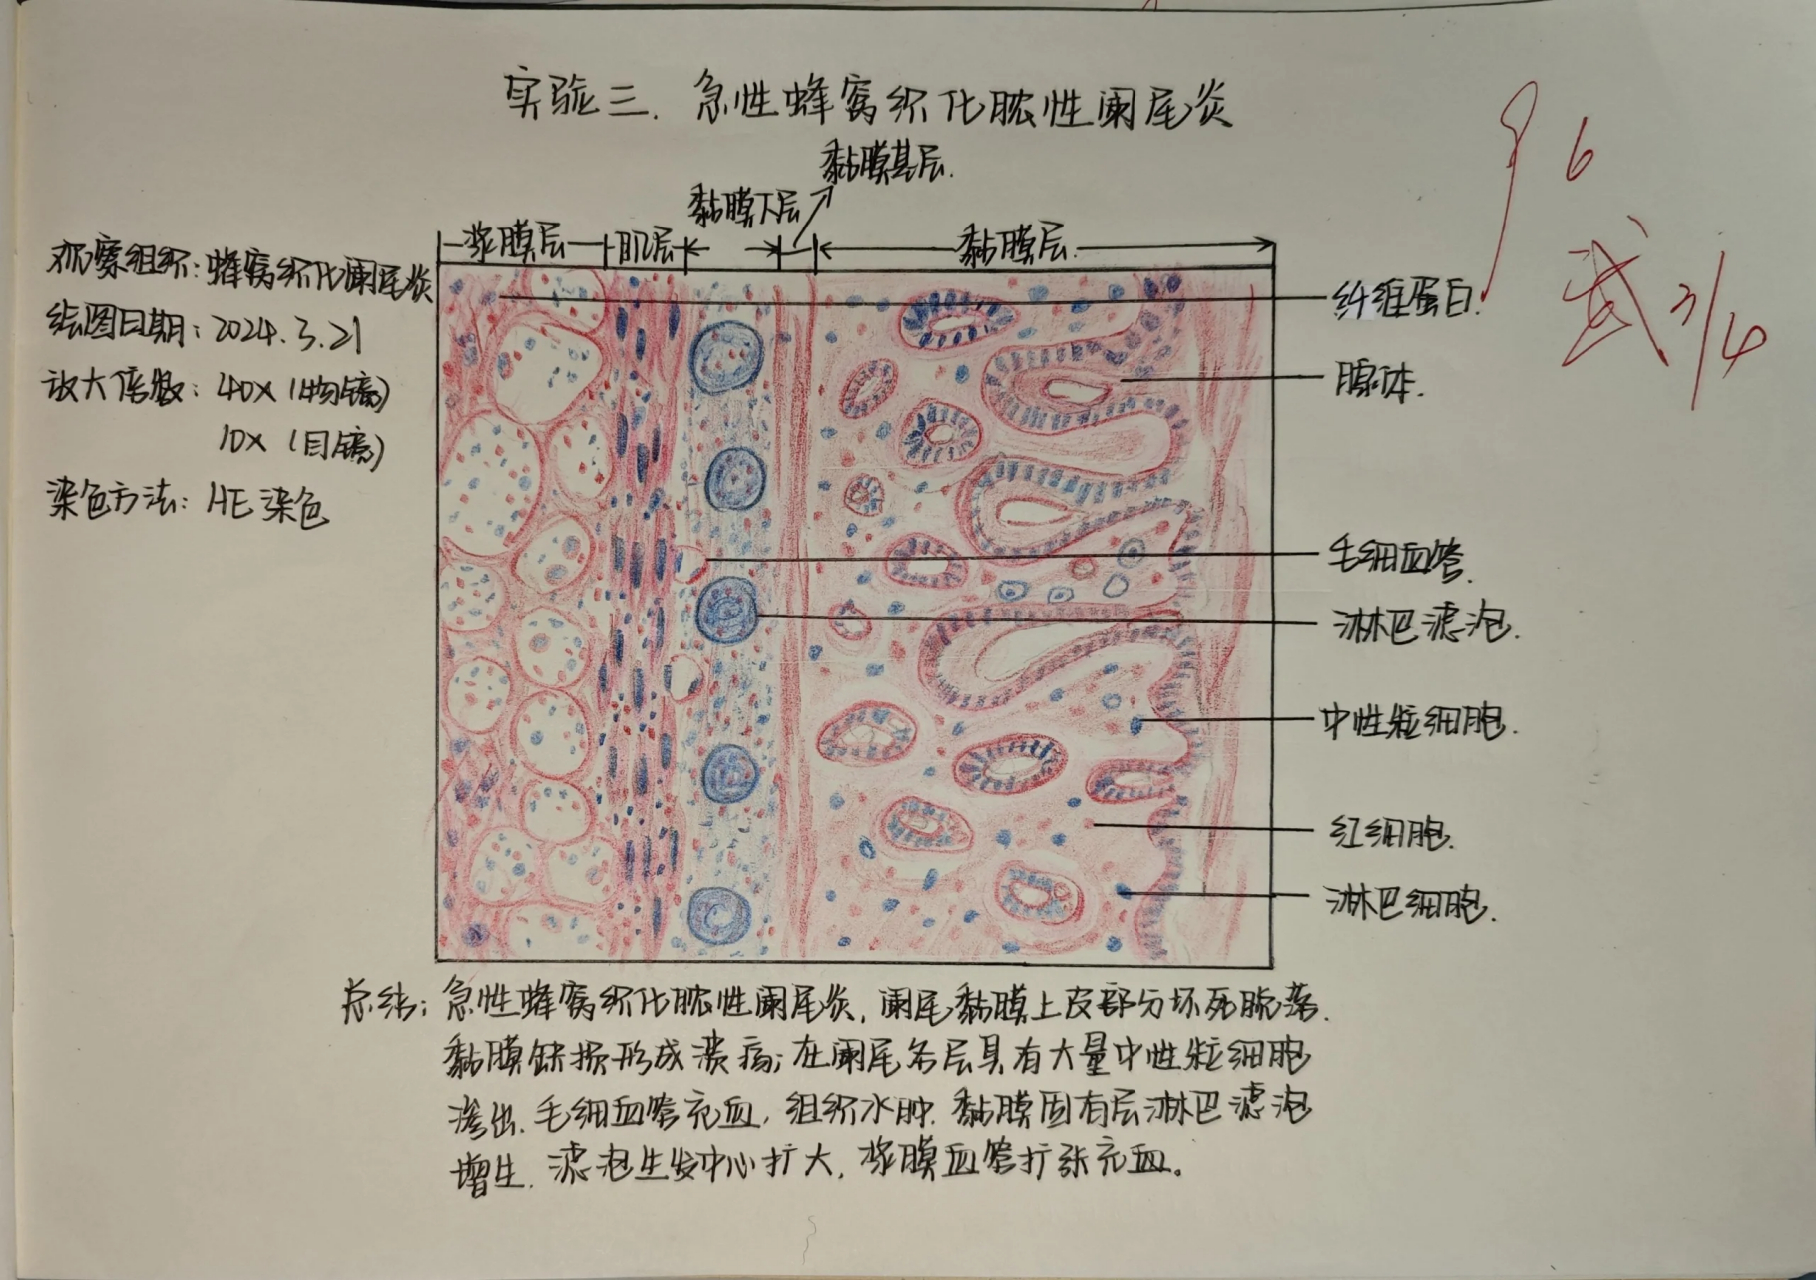 实验三. 急性蜂窝织化脓性阑尾炎
黏膜基层.
黏膜下层
浆膜层 肌层 黏膜层.
观察组织: 蜂窝织化阑尾炎
绘图日期: 2024.3.21
放大倍数: 40x (物镜)
10x (目镜)
染色方法: HE 染色
纤维蛋白.
腺体.
毛细血管.
淋巴滤泡.
中性粒细胞.
红细胞.
淋巴细胞.
96
武 3/4
总结: 急性蜂窝织化脓性阑尾炎, 阑尾黏膜上皮部分坏死脱落.
黏膜缺损形成溃疡; 在阑尾各层具有大量中性粒细胞
渗出. 毛细血管充血, 组织水肿. 黏膜固有层淋巴滤泡
增生. 滤泡生发中心扩大, 浆膜血管扩张充血。